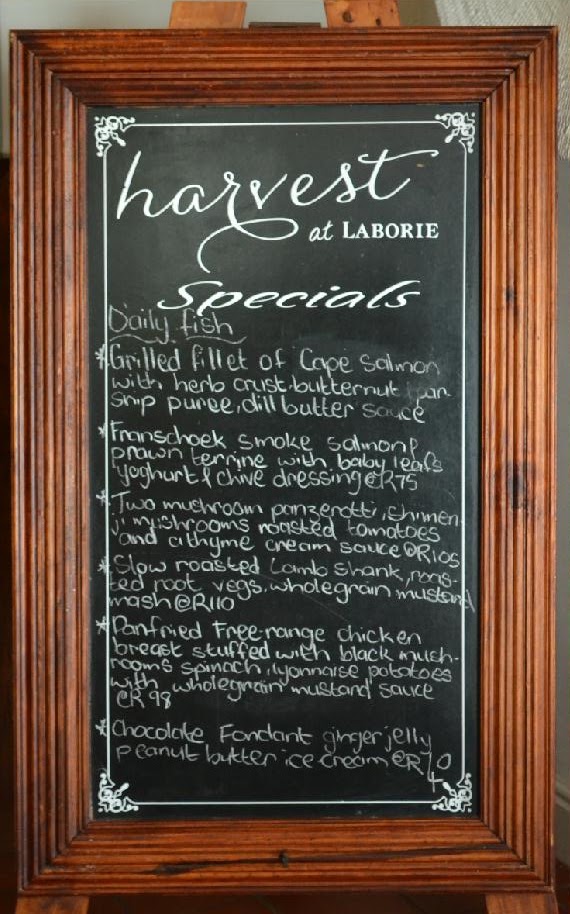 harvest
at LABORIE
Specials
Daily fish
*Grilled fillet of Cape Salmon
with herb crust, butternut, par-
snip puree, dill butter sauce
*Franschoek smoke salmon &
prawn terrine with baby leafs
yoghurt & chive dressing @R75
*Two mushroom panzerotti, shimen
ji mushrooms roasted tomatoes
and a thyme cream sauce @R105
*Slow roasted Lamb shank, roas-
ted root vegs, wholegrain mustard
mash @R110
*Panfried Free-range chicken
breast stuffed with black mush-
rooms spinach, lyonnaise potatoes
with wholegrain mustard sauce
@R 98
*Chocolate Fondant ginger jelly
peanut butter ice cream @R40